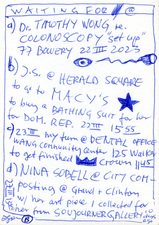 WAITING FOR
a) Dr. TIMOTHY WONG re.
COLONOSCOPY "set up"
77 BOWERY 22 III 2023
b) J.S. @ HERALD SQUARE
to go to MACY'S
to buy a BATHING SUIT for her
for DOM. REP. 15 55
c) my turn @ DENTAL OFFICE
WANG COMMUNITY CENTER 125 Walker
to get finished CROWN
d) NINA SOBELL @ CITY COM-
posting @ Grand + Clinton
w/ her art piece I collected for
her from SOUJOURNER GALLERY